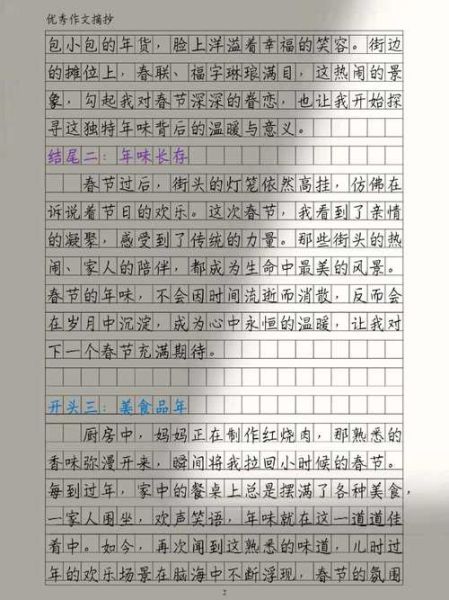 优秀作文摘抄
包小包的年货，脸上洋溢着幸福的笑容。街边
的摊位上，春联、福字琳琅满目，这热闹的景
象，勾起我对春节深深的眷恋，也让我开始探
寻这独特年味背后的温暖与意义。
结尾二：年味长存
春节过后，街头的灯笼依然高挂，仿佛在
诉说着节日的欢乐。这次春节，我看到了亲情
的凝聚，感受到了传统的力量。那些街头的热
闹、家人的陪伴，都成为生命中最美的风景。
春节的年味，不会因时间流逝而消散，反而会
在岁月中沉淀，成为心中永恒的温暖，让我对
下一个春节充满期待。
开头三：美食品年
厨房中，妈妈正在制作红烧肉，那熟悉的
香味弥漫开来，瞬间将我拉回小时候的春节。
每到过年，家中的餐桌上总是摆满了各种美食，
一家人围坐，欢声笑语，年味就在这一道道佳
肴中。如今，再次闻到这熟悉的味道，儿时过
年的欢乐场景在脑海中不断浮现，春节的氛围
2